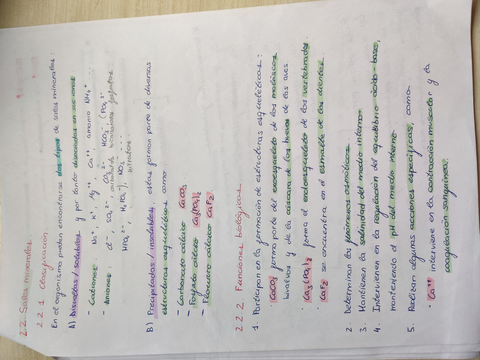 2.2. Sales minerales
2.2.1 Clasificación
En el organismo podemos encontrarlas dos tipos de sales minerales:
A) Disueltas / solubles y por tanto disociadas en sus iones
- Cationes: Na⁺, K⁺, Mg²⁺, Ca²⁺ amonio NH₄⁺
- Aniones: Cl⁻ SO₄²⁻ CO₃²⁻ HCO₃⁻ (PO₄³⁻
HPO₄²⁻, H₂PO₄⁻), NO₃⁻
nitratos
B) Precipitadas / insolubles, estas forman parte de diversas
estructuras esqueléticas como
- Carbonato cálcico CaCO₃
- Fosfato cálcico Ca₃(PO₄)₂
- Fluoruro cálcico CaF₂
2.2.2 Funciones biológicas
1. Participan en la formación de estructuras esqueléticas:
· CaCO₃ forma parte del exoesqueleto de los moluscos
bivalvos y de la cáscara de los huevos de las aves
· Ca₃(PO₄)₂ forma el endoesqueleto de los vertebrados
· CaF₂ se encuentra en el esmalte de los dientes
2. Determinan los fenómenos osmóticos
3. Mantienen la salinidad del medio interno
4. Intervienen en la regulación del equilibrio ácido-base,
manteniendo el pH del medio interno
5. Realizan algunas acciones específicas, como
· Ca²⁺ interviene en la contracción muscular y la
coagulación sanguínea